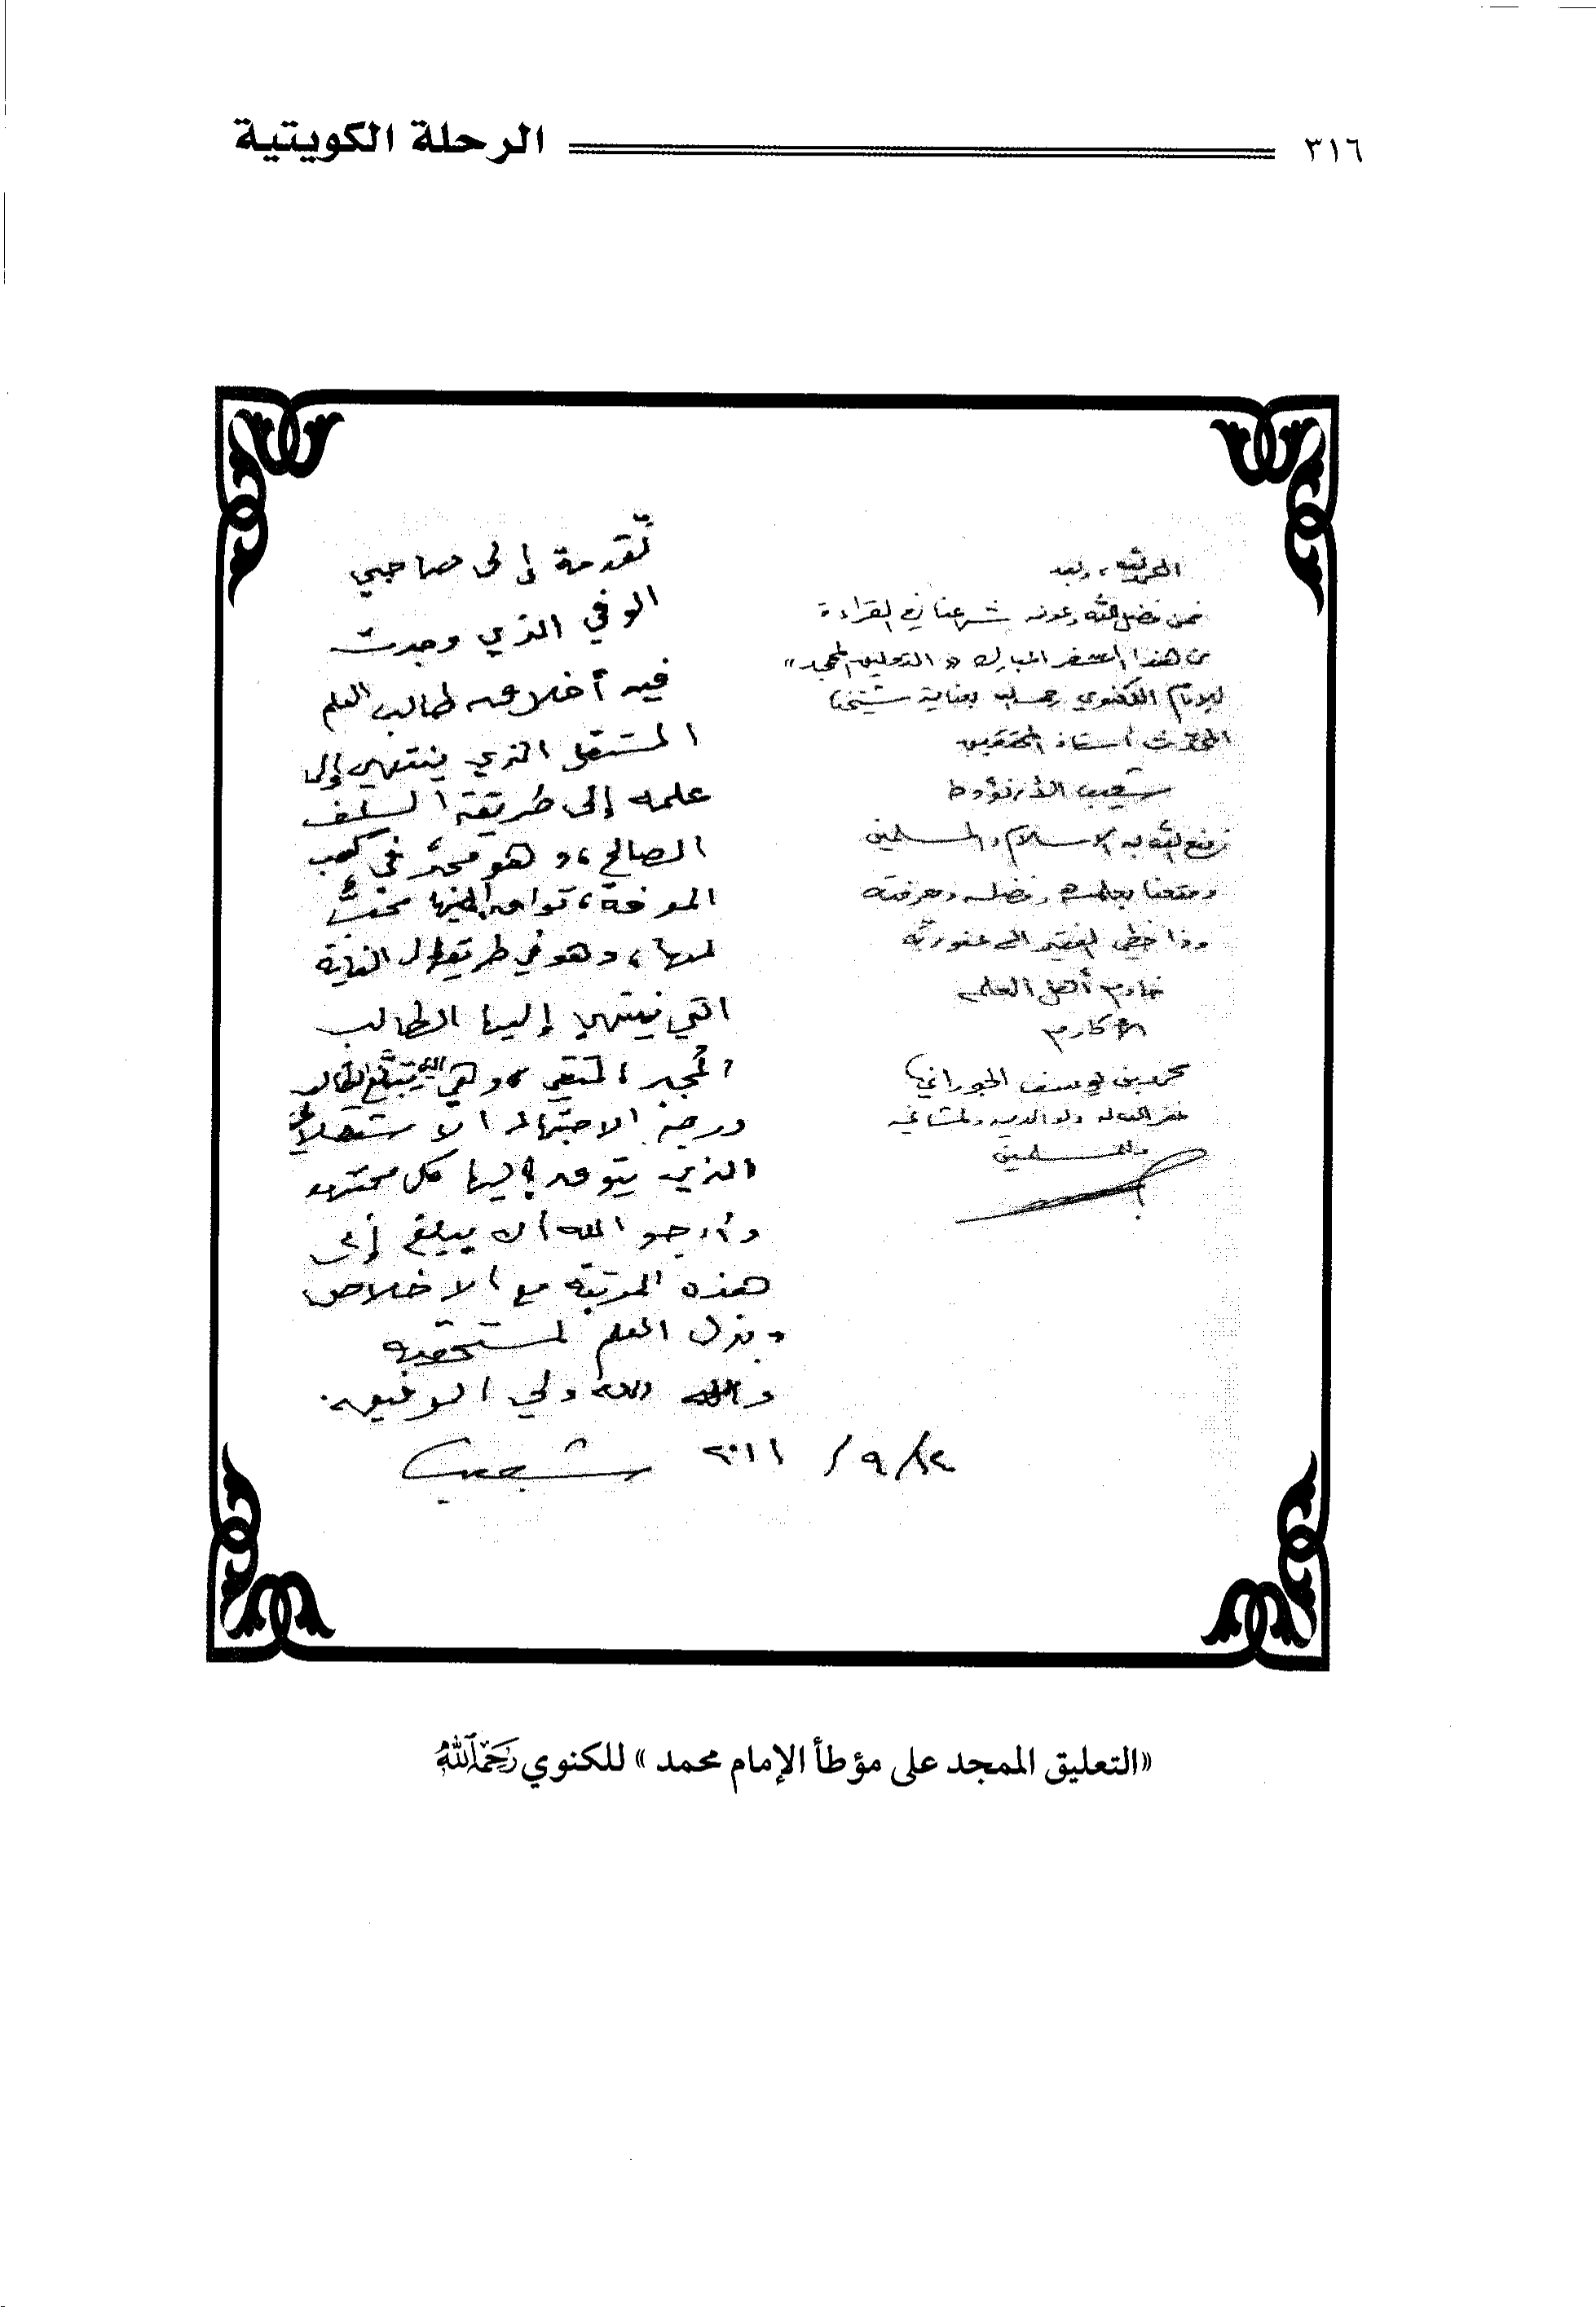 ٣١٦
الرحلة الكويتية
الحمد لله، وبعد
فمن فضل الله وعونه شرعنا في القراءة
من هذا السفر المبارك «التعليق الممجد»
للإمام اللكنوي رحمه الله بعناية شيخنا
المحدث أستاذ المحققين
شعيب الأرنؤوط
نفع الله به الإسلام والمسلمين
ومتعنا بعلمه وفضله ومعرفته
وذا خطي الفقير إلى عفو ربه
خادم أهل العلم
الأكارم
محمد بن يوسف الجوراني
غفر الله له ولوالديه ولمشايخه
وللمسلمين
تقدمة إلى صاحبي
الوفي الذي وجدت
فيه أخلاق طالب العلم
المستقل الذي ينتهي إلى
علمه إلى طريقة السلف
الصالح، وهو مجد في كسب
المعرفة، تواق إليها محب
لها، وهو في طريقه إلى الغاية
التي ينتهي إليها الطالب
المجد، المتقي، وهي
درجة الاجتهاد الاستقلالي
الذي يتوق إليها كل مجتهد
وأرجو الله أن يبلغ إلى
هذه المرتبة مع الإخلاص
وبذل العلم لمستحقيه
والله ولي التوفيق.
١٢/ ٩/ ٢٠١١
شعيب
«التعليق الممجد على مؤطأ الإمام محمد» للكنوي رحمه الله